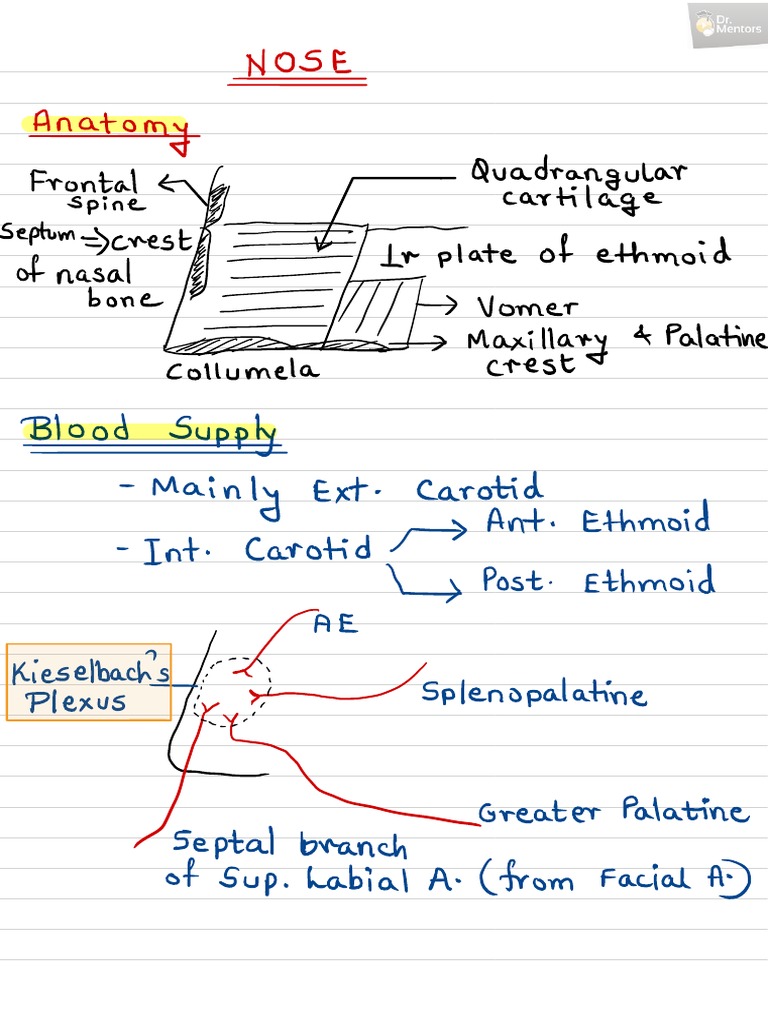 Dr.
Mentors
NOSE
Anatomy
Frontal
spine
Septum ⇒ crest
of nasal
bone
Quadrangular
cartilage
Ir plate of ethmoid
Vomer
Maxillary & Palatine
crest
Collumela
Blood Supply
- Mainly Ext. Carotid
- Int. Carotid
Ant. Ethmoid
Post. Ethmoid
AE
Kieselbach's
Plexus
Splenopalatine
Greater Palatine
Septal branch
of Sup. Labial A. (from Facial A.)